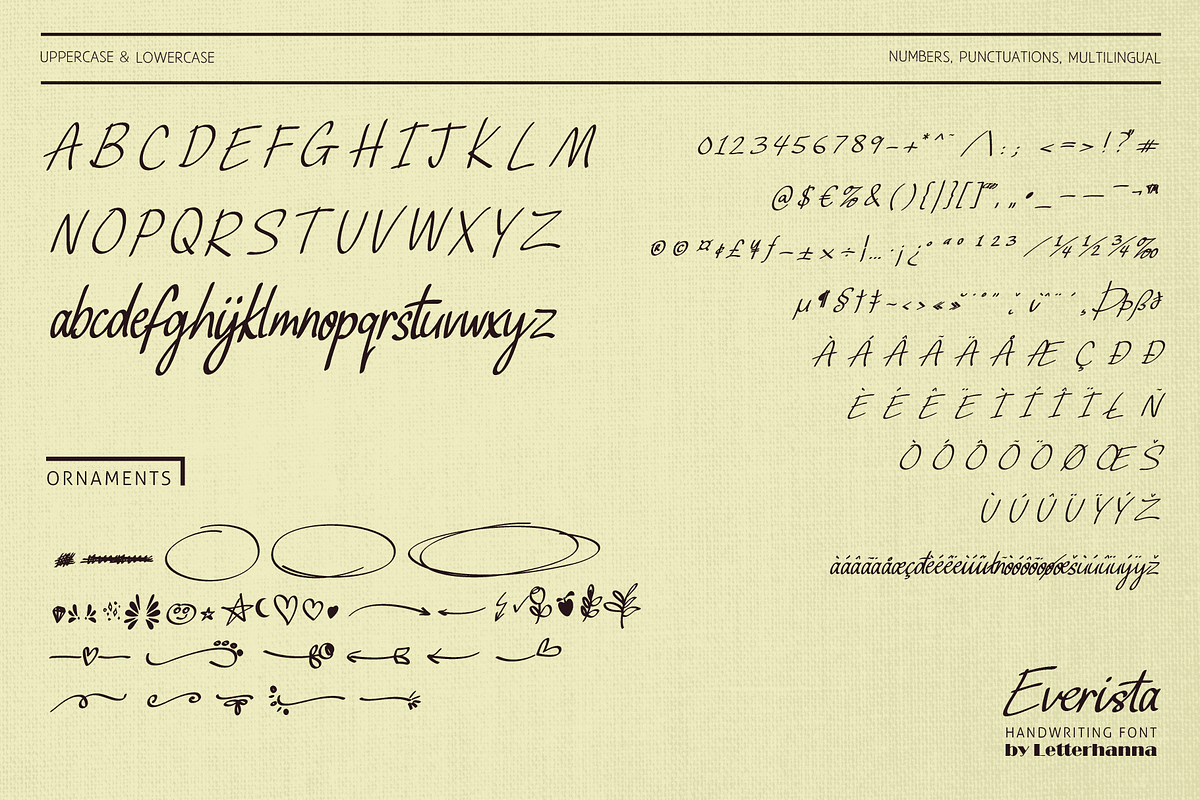 UPPERCASE & LOWERCASE
NUMBERS, PUNCTUATIONS, MULTILINGUAL
A B C D E F G H I J K L M
N O P Q R S T U V W X Y Z
abcdefghijklmnopqrstuvwxyz
0123456789-+*^~ /\:; <=>!?#
@$€%&(){|}[]
®©¤¢£¥ƒ−±×÷¦…·¡¿°ªº123 ⁄¼½¾‰
µ¶§†‡~‹›«»
À Á Â Ã Ä Å Æ Ç Ð Đ
È É Ê Ë Ì Í Î Ï Ł Ñ
Ò Ó Ô Õ Ö Ø Œ Š
Ù Ú Û Ü Ÿ Ý Ž
ORNAMENTS
Everista
HANDWRITING FONT
by Letterhanna